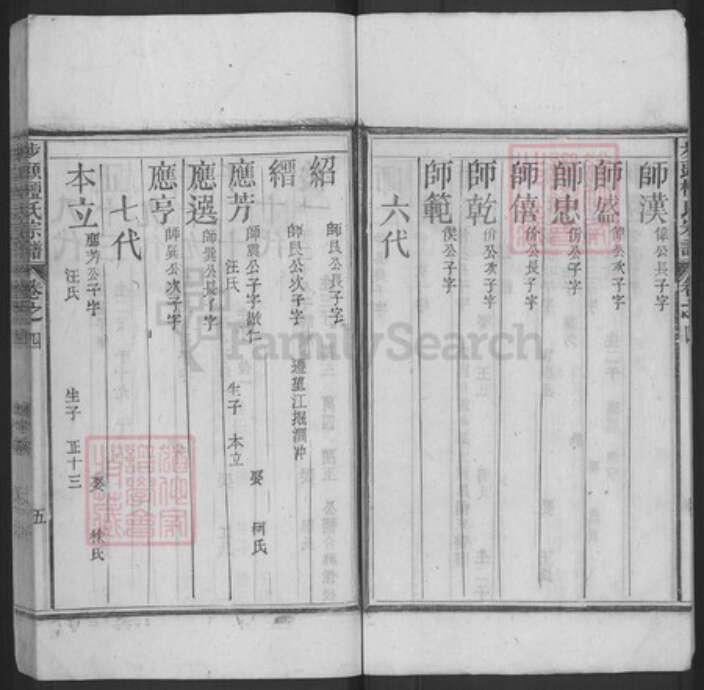 師漢 偉公長子字
師盛 偉公次子字
師忠 份公子字
師僖 价公長子字
師乾 价公次子字
師範 俁公子字
六代
紹 師艮公長子字
縉 師艮公次子字 遷望江掘澗冲
應芳 師震公子字啟仁 娶 柯氏
汪氏 生子 本立
應選 師巽公長子字
應亨 師巽公次子字
七代
本立 應芳公子字 娶 林氏
汪氏 生子 正十三
氏宗譜 卷之四
五
FamilySearch